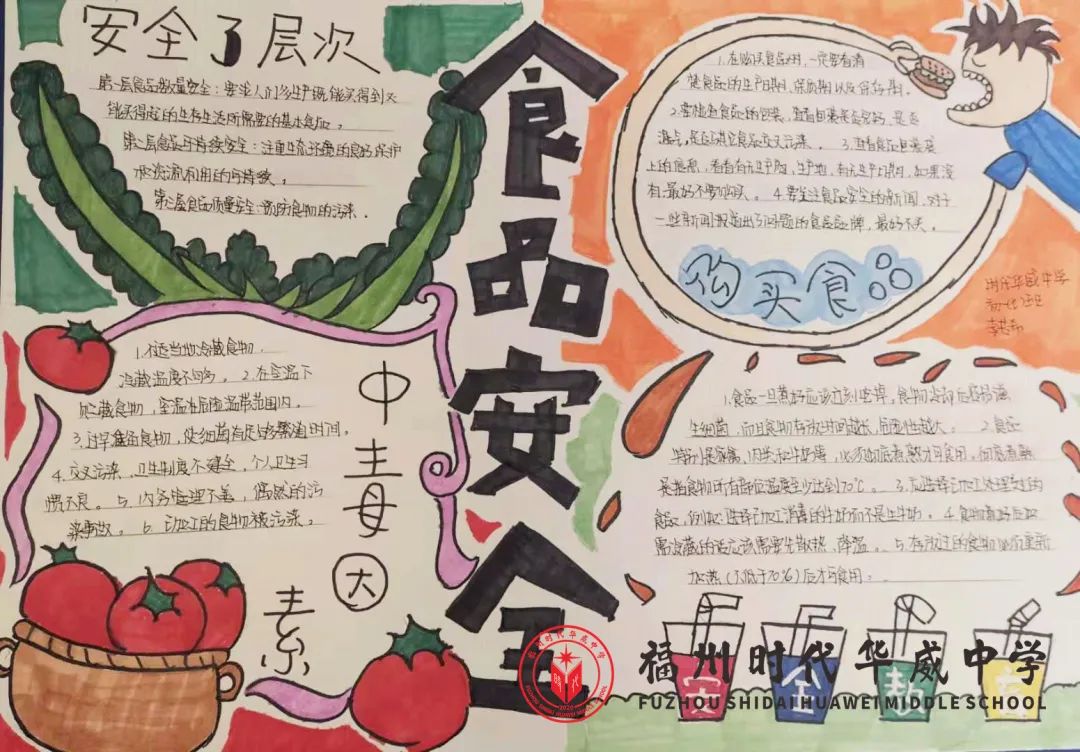 安全3层次
第一层食品数量安全：要求人们多生产既能买得到又
能买得起的生存生活所需要的基本食品。
第二层食品可持续安全：注重生态环境的良好保护
水资源利用的可持续。
第三层食品质量安全：预防食物的污染．
食品安全
1.在购买食品时，一定要看清
楚食品的生产日期，保质期以及保存期．
2.要检查食品的包装，查看包装是否完好，是否
漏点，是否与其它食品交叉污染．3.查看食品包装袋
上的信息，看看有无生产商，生产地，有无生产日期，如果没
有，最好不要购买。4.要关注食品安全的新闻，对于
一些新闻报道出了问题的食品品牌，最好不买。
购买食品
时代华威中学
1.不适当地冷藏食物．
冷藏温度不够。2.在室温下
贮藏食物，室温在危险温带范围内．
3.过早准备食物，使细菌有足够繁殖时间．
4.交叉污染，卫生制度不健全，个人卫生习
惯不良。5.内务管理不善，偶然的污
染事故。6.动加工的食物被污染。
中毒6大
素
1.食品一旦煮好应该立刻吃掉，食物冷却后容易滋
生细菌，而且食物存放时间越长，危险性越大。2.食品
特别是家禽、肉类和牛奶等，必须彻底煮熟才可食用，彻底煮熟
是指食物所有部位温度至少达到70℃。3.应选择已加工处理好的
食品，例如：选择已加工消毒的牛奶而不是生牛奶。4.食物煮好后如
需冷藏的话应该需要先散热，降温。5.存放过的食物必须重新
加热（不低于70℃）后才可食用．
安全
福州时代华威中学
FUZHOU SHIDAI HUAWEI MIDDLE SCHOOL
时代
2020